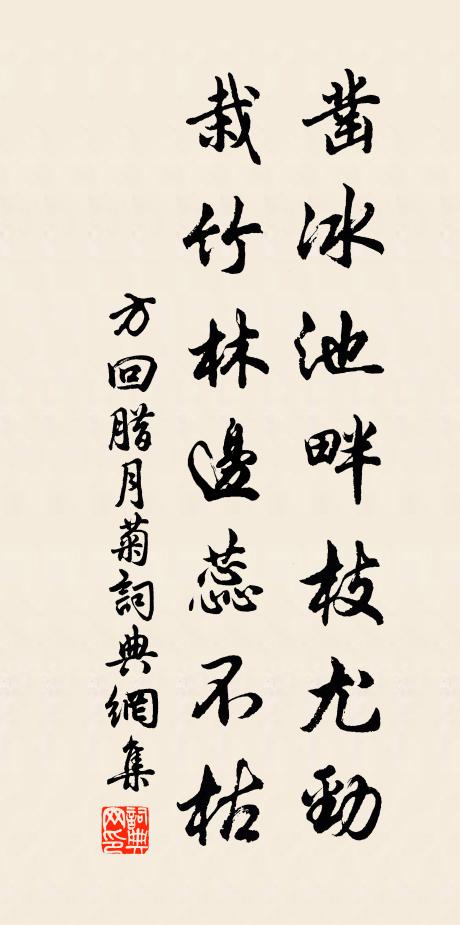 凿冰池畔枝尤勁
栽竹林邊蕊不枯
方回腊月菊詞典網集
詞典网印